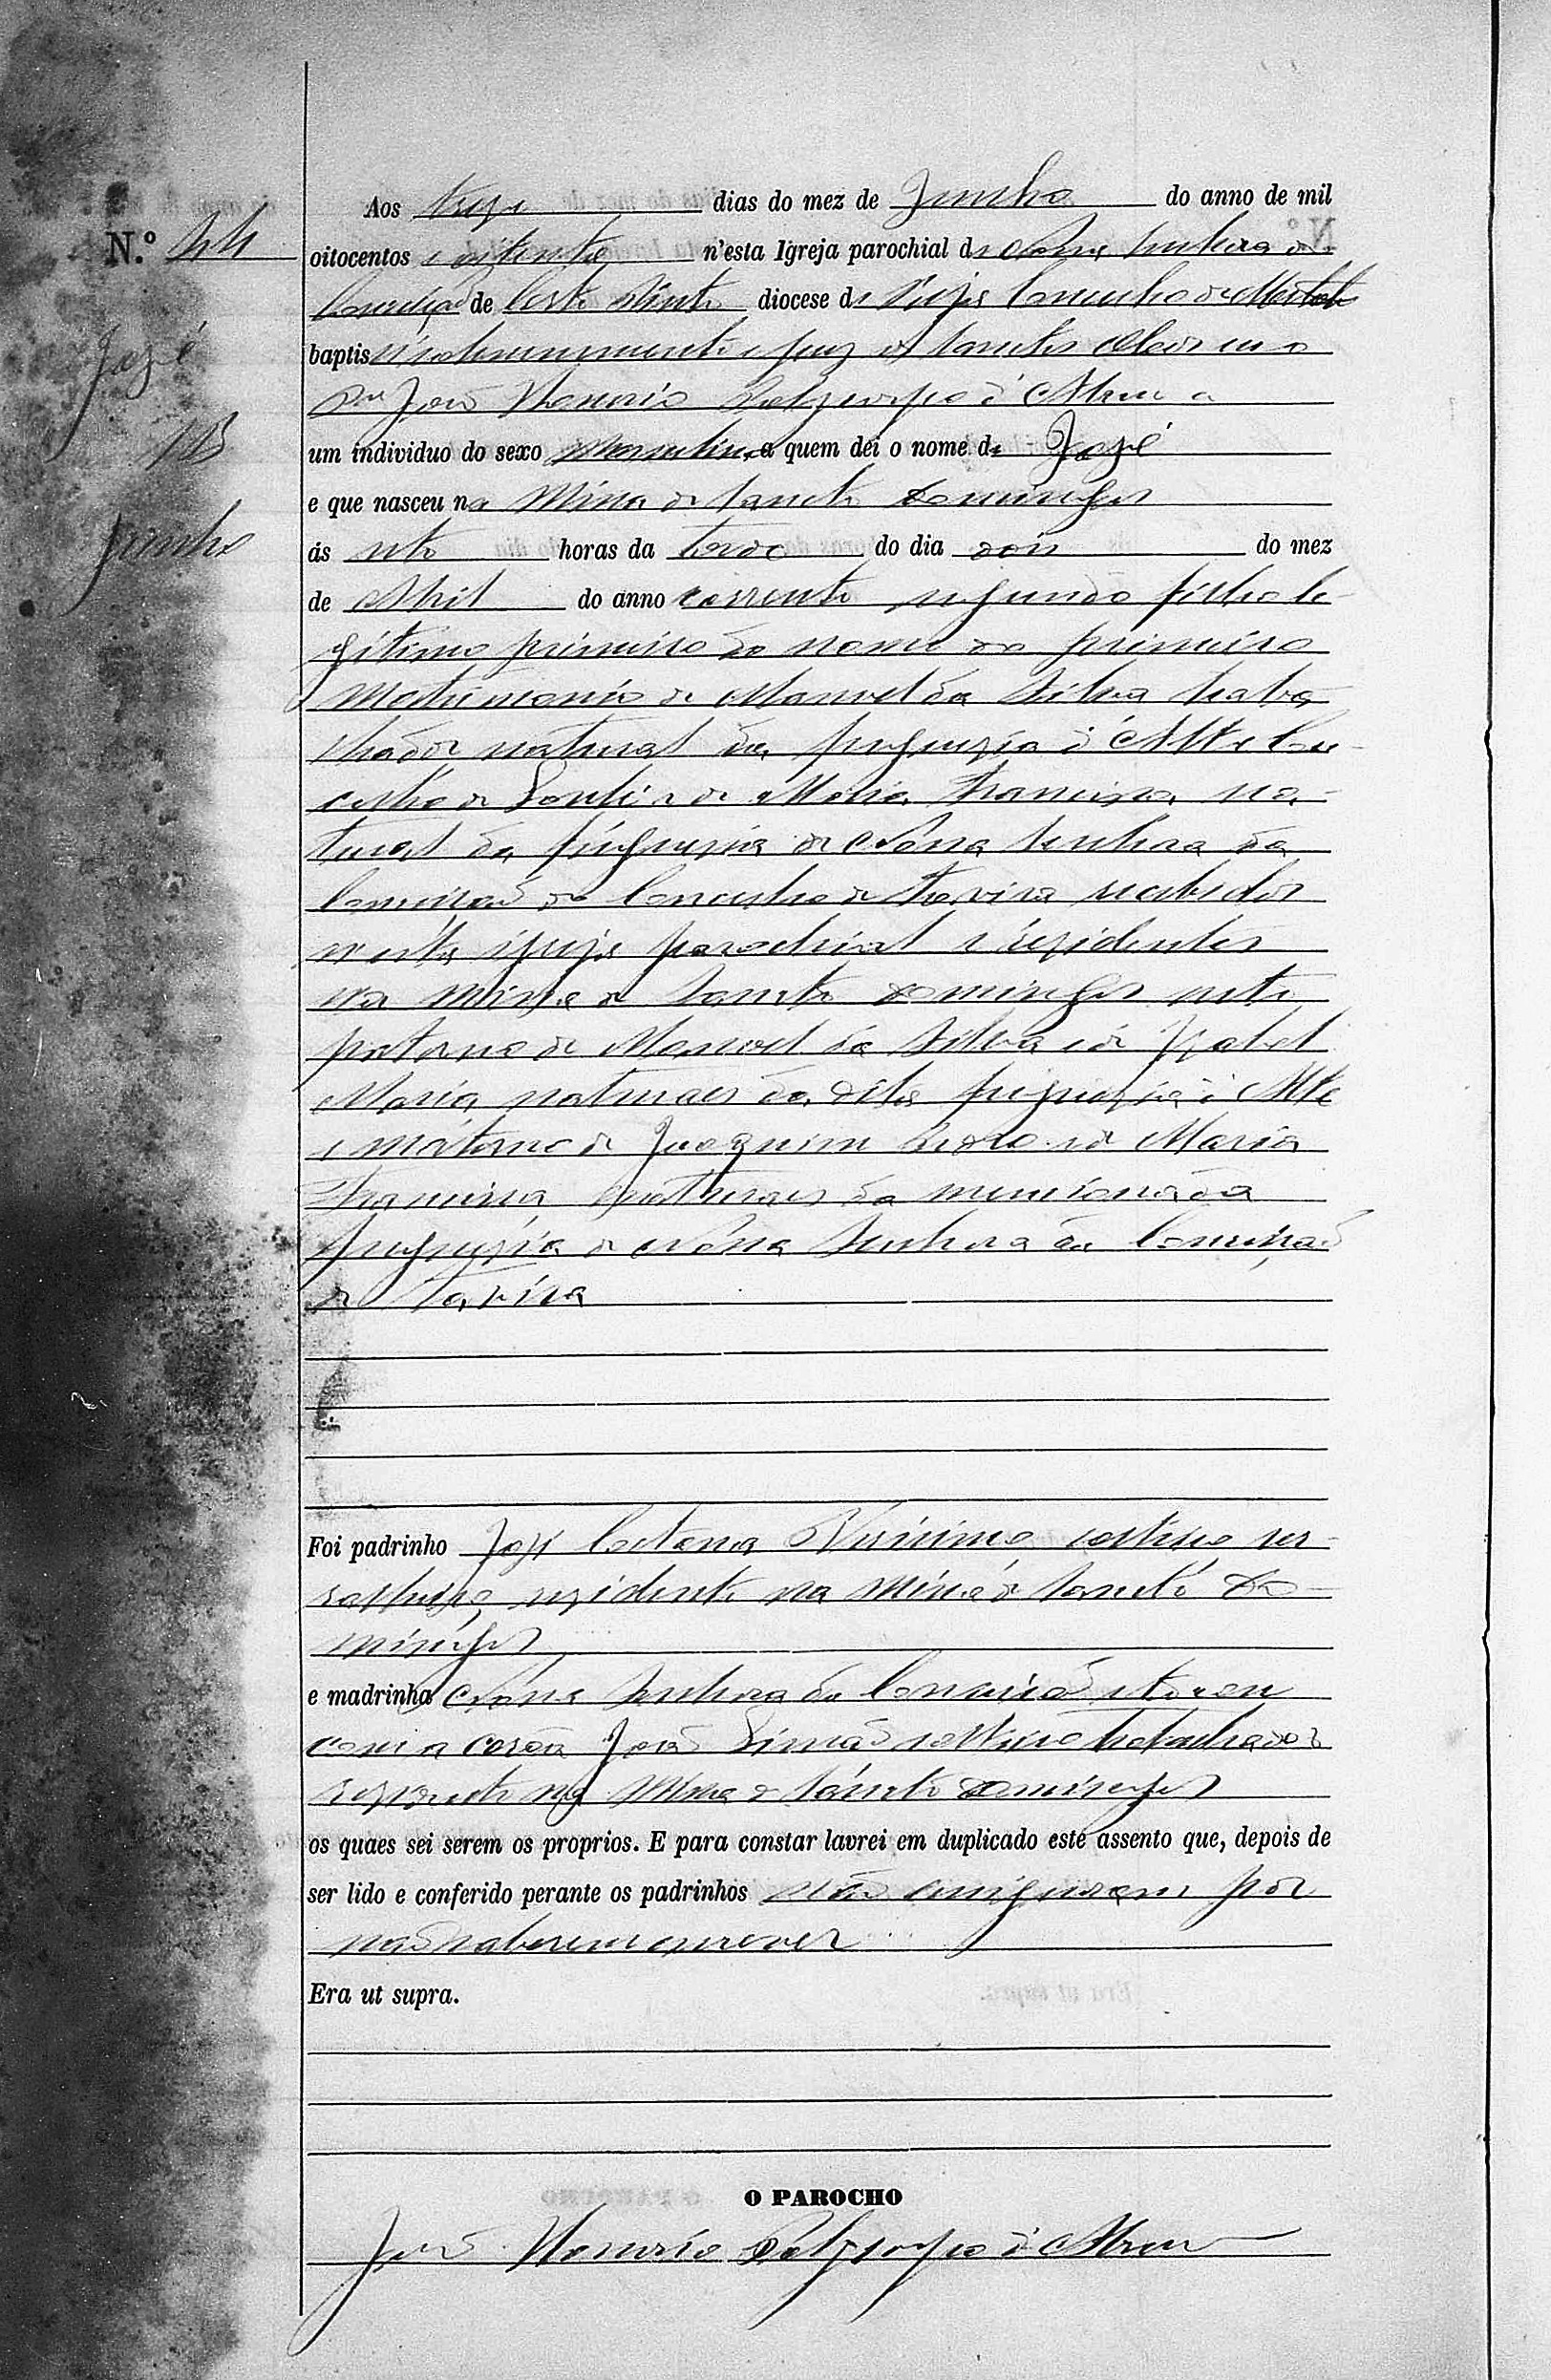 Aos treze dias do mez de Junho do anno de mil
N.º 44
oitocentos e oitenta n'esta Igreja parochial de Nossa Senhora da
Conceição de Corte Pinto diocese de Beja Concelho de Mertola
José
baptisei solemnemente e puz os Sanctos Oleos eu o
João Honorio d'Abreu a
13
um individuo do sexo Masculino a quem dei o nome de José
e que nasceu na Mina de Sancto Domingos
Junho
ás sete horas da tarde do dia dois do mez
de Abril do anno corrente segundo filho le-
gitimo primeiro do nome do primeiro
Matrimonio de Manoel da Silva traba
lhador natural da freguezia d'Alte Con-
celho de Loulé e de Maria Francisca na-
tural da freguezia de Nossa Senhora da
Conceição do Concelho de Tavira recebidos
n'esta igreja parochial e rezidentes
na Mina de Sancto Domingos neto
paterno de Manoel da Silva e de Izabel
Maria naturaes da dita freguezia d'Alte
e materno de Joaquim e de Maria
Francisca naturaes da mencionada
freguezia de Nossa Senhora da Conceição
de Tavira
Foi padrinho José Caetano solteiro
rezidente na Mina de Sancto Do-
mingos
e madrinha Nossa Senhora da Conceição e tocou
com a corôa João Simão solteiro trabalhador
rezidente na Mina de Sancto Domingos
os quaes sei serem os proprios. E para constar lavrei em duplicado este assento que, depois de
ser lido e conferido perante os padrinhos não assignaram por
não saberem escrever
Era ut supra.
O PAROCHO
João Honorio d'Abreu